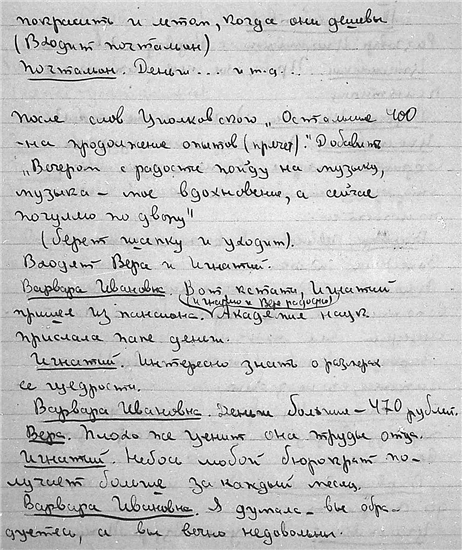 покрасить и летом, когда они дешевы
(Входит почтальон)
Почтальон. Деньги.... и т.д...
После слов Циолковского „Остальные 400
- на продолжение опытов (прочел)." Добавить
„Вечером с радости пойду на музыку,
музыка – мое вдохновение, а сейчас
погуляю по двору"
(берет шапку и уходит).
Входят Вера и Игнатий.
Варвара Ивановна. Вот кстати, Игнатий
(Игнатию и Вере радостно)
пришел из пансиона. Академия наук
прислала папе деньги.
Игнатий. Интересно знать о размерах
ее щедрости.
Варвара Ивановна. Деньги большие – 470 рублей.
Вера. Плохо же ценит она труды отца.
Игнатий. Небось любой бюрократ по-
лучает больше за каждый месяц.
Варвара Ивановна. Я думала – вы обра-
дуетесь, а вы вечно недовольны.